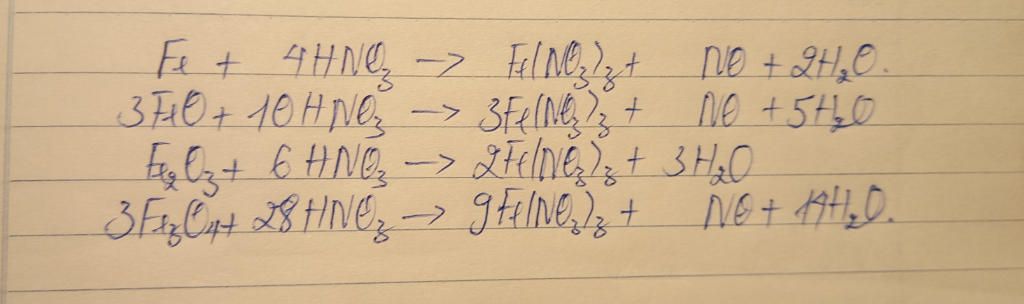 Fe + 4HNO₃ → Fe(NO₃)₃ + NO + 2H₂O.
3FeO + 10HNO₃ → 3Fe(NO₃)₃ + NO + 5H₂O
Fe₂O₃ + 6HNO₃ → 2Fe(NO₃)₃ + 3H₂O
3Fe₃O₄ + 28HNO₃ → 9Fe(NO₃)₃ + NO + 14H₂O.